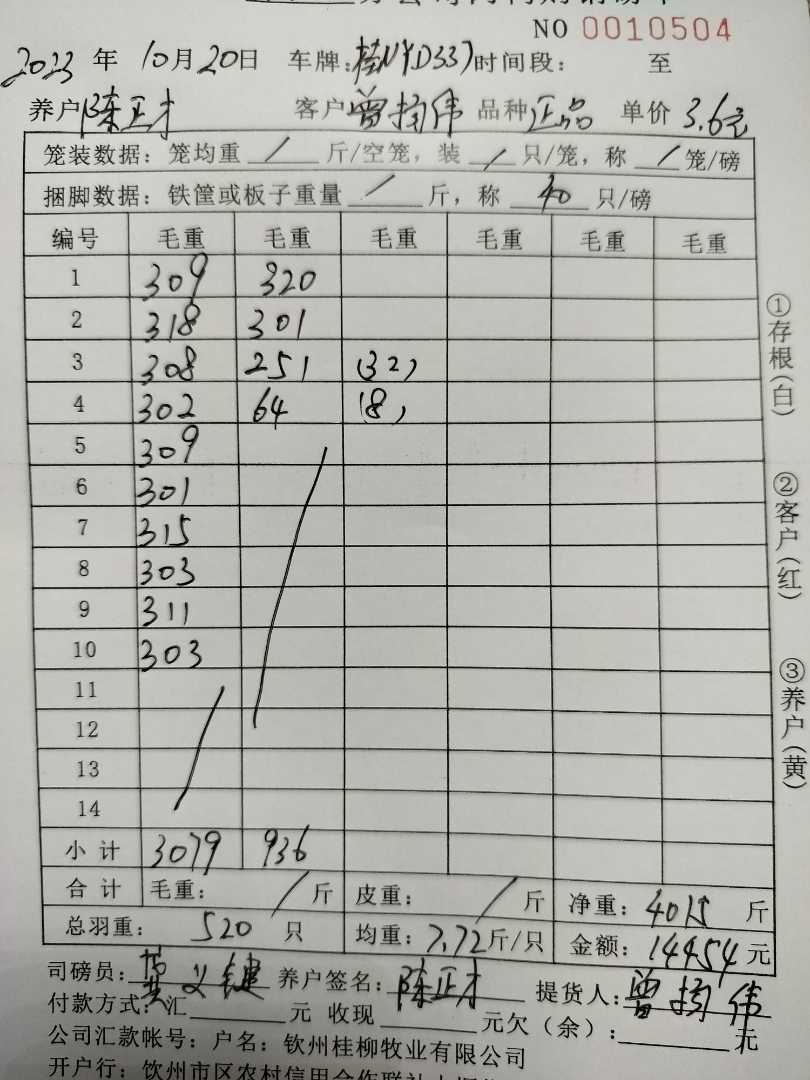 NO 0010504
2023 年 10月20日 车牌:桂NYD337 时间段: 至
养户 陈正才 客户 曾扬伟 品种 正品 单价 3.6元
笼装数据:笼均重 / 斤/空笼,装 / 只/笼,称 / 笼/磅
捆脚数据:铁筐或板子重量 / 斤,称 40 只/磅
编号 毛重 毛重 毛重 毛重 毛重 毛重
1 309 320
2 318 301
3 308 251 (32)
4 302 64 (8)
5 309
6 301
7 315
8 303
9 311
10 303
11
12
13
14
小计 3079 936
合计 毛重: / 斤 皮重: / 斤 净重: 4015 斤
总羽重: 520 只 均重: 7.72 斤/只 金额: 14454 元
司磅员: 莫义键 养户签名: 陈正才 提货人: 曾扬伟
付款方式:汇 元 收现 元欠(余): 元
公司汇款帐号:户名:钦州桂柳牧业有限公司
开户行:钦州市区农村信用合作联社
①存根(白)
②客户(红)
③养户(黄)